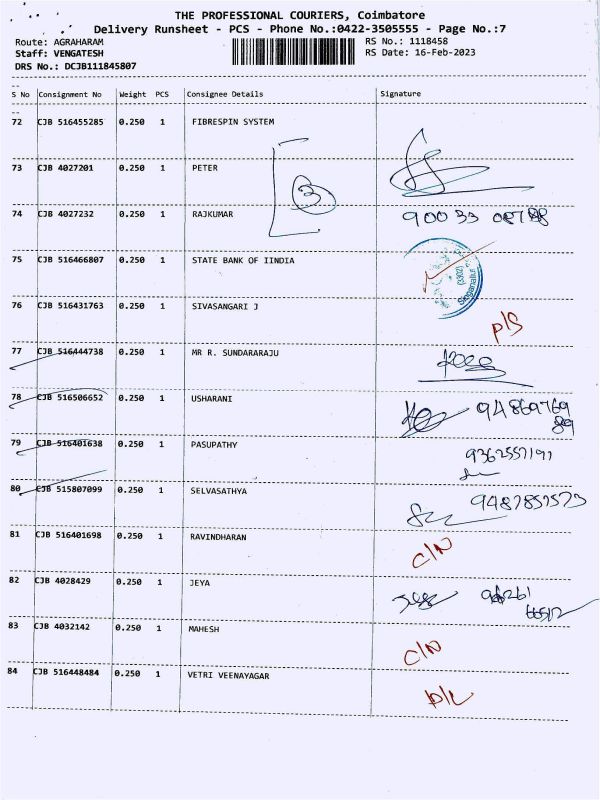 THE PROFESSIONAL COURIERS, Coimbatore
Delivery Runsheet - PCS - Phone No.:0422-3505555 - Page No.:7
Route: AGRAHARAM RS No.: 1118458
Staff: VENGATESH RS Date: 16-Feb-2023
DRS No.: DCJB111845807
S No Consignment No Weight PCS Consignee Details Signature
72 CJB 516455285 0.250 1 FIBRESPIN SYSTEM
73 CJB 4027201 0.250 1 PETER
3
74 CJB 4027232 0.250 1 RAJKUMAR 90033
75 CJB 516466807 0.250 1 STATE BANK OF IINDIA
76 CJB 516431763 0.250 1 SIVASANGARI J P/S
77 CJB 516444738 0.250 1 MR R. SUNDARARAJU
78 CJB 516506652 0.250 1 USHARANI 94869769
89
79 CJB 516401638 0.250 1 PASUPATHY 9362557191
80 CJB 515807099 0.250 1 SELVASATHYA 9487857573
81 CJB 516401698 0.250 1 RAVINDHARAN C/N
82 CJB 4028429 0.250 1 JEYA
83 CJB 4032142 0.250 1 MAHESH C/N
84 CJB 516448484 0.250 1 VETRI VEENAYAGAR D/L